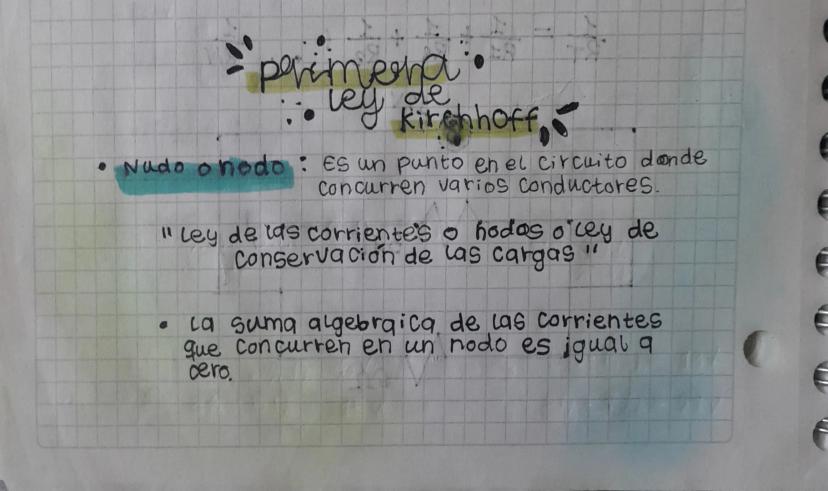 Primera
ley de
Kirchhoff
• Nudo o nodo: Es un punto en el circuito donde
concurren varios conductores.
"Ley de las corrientes o nodos o ley de
conservación de las cargas"
• La suma algebraica de las corrientes
que concurren en un nodo es igual a
cero.